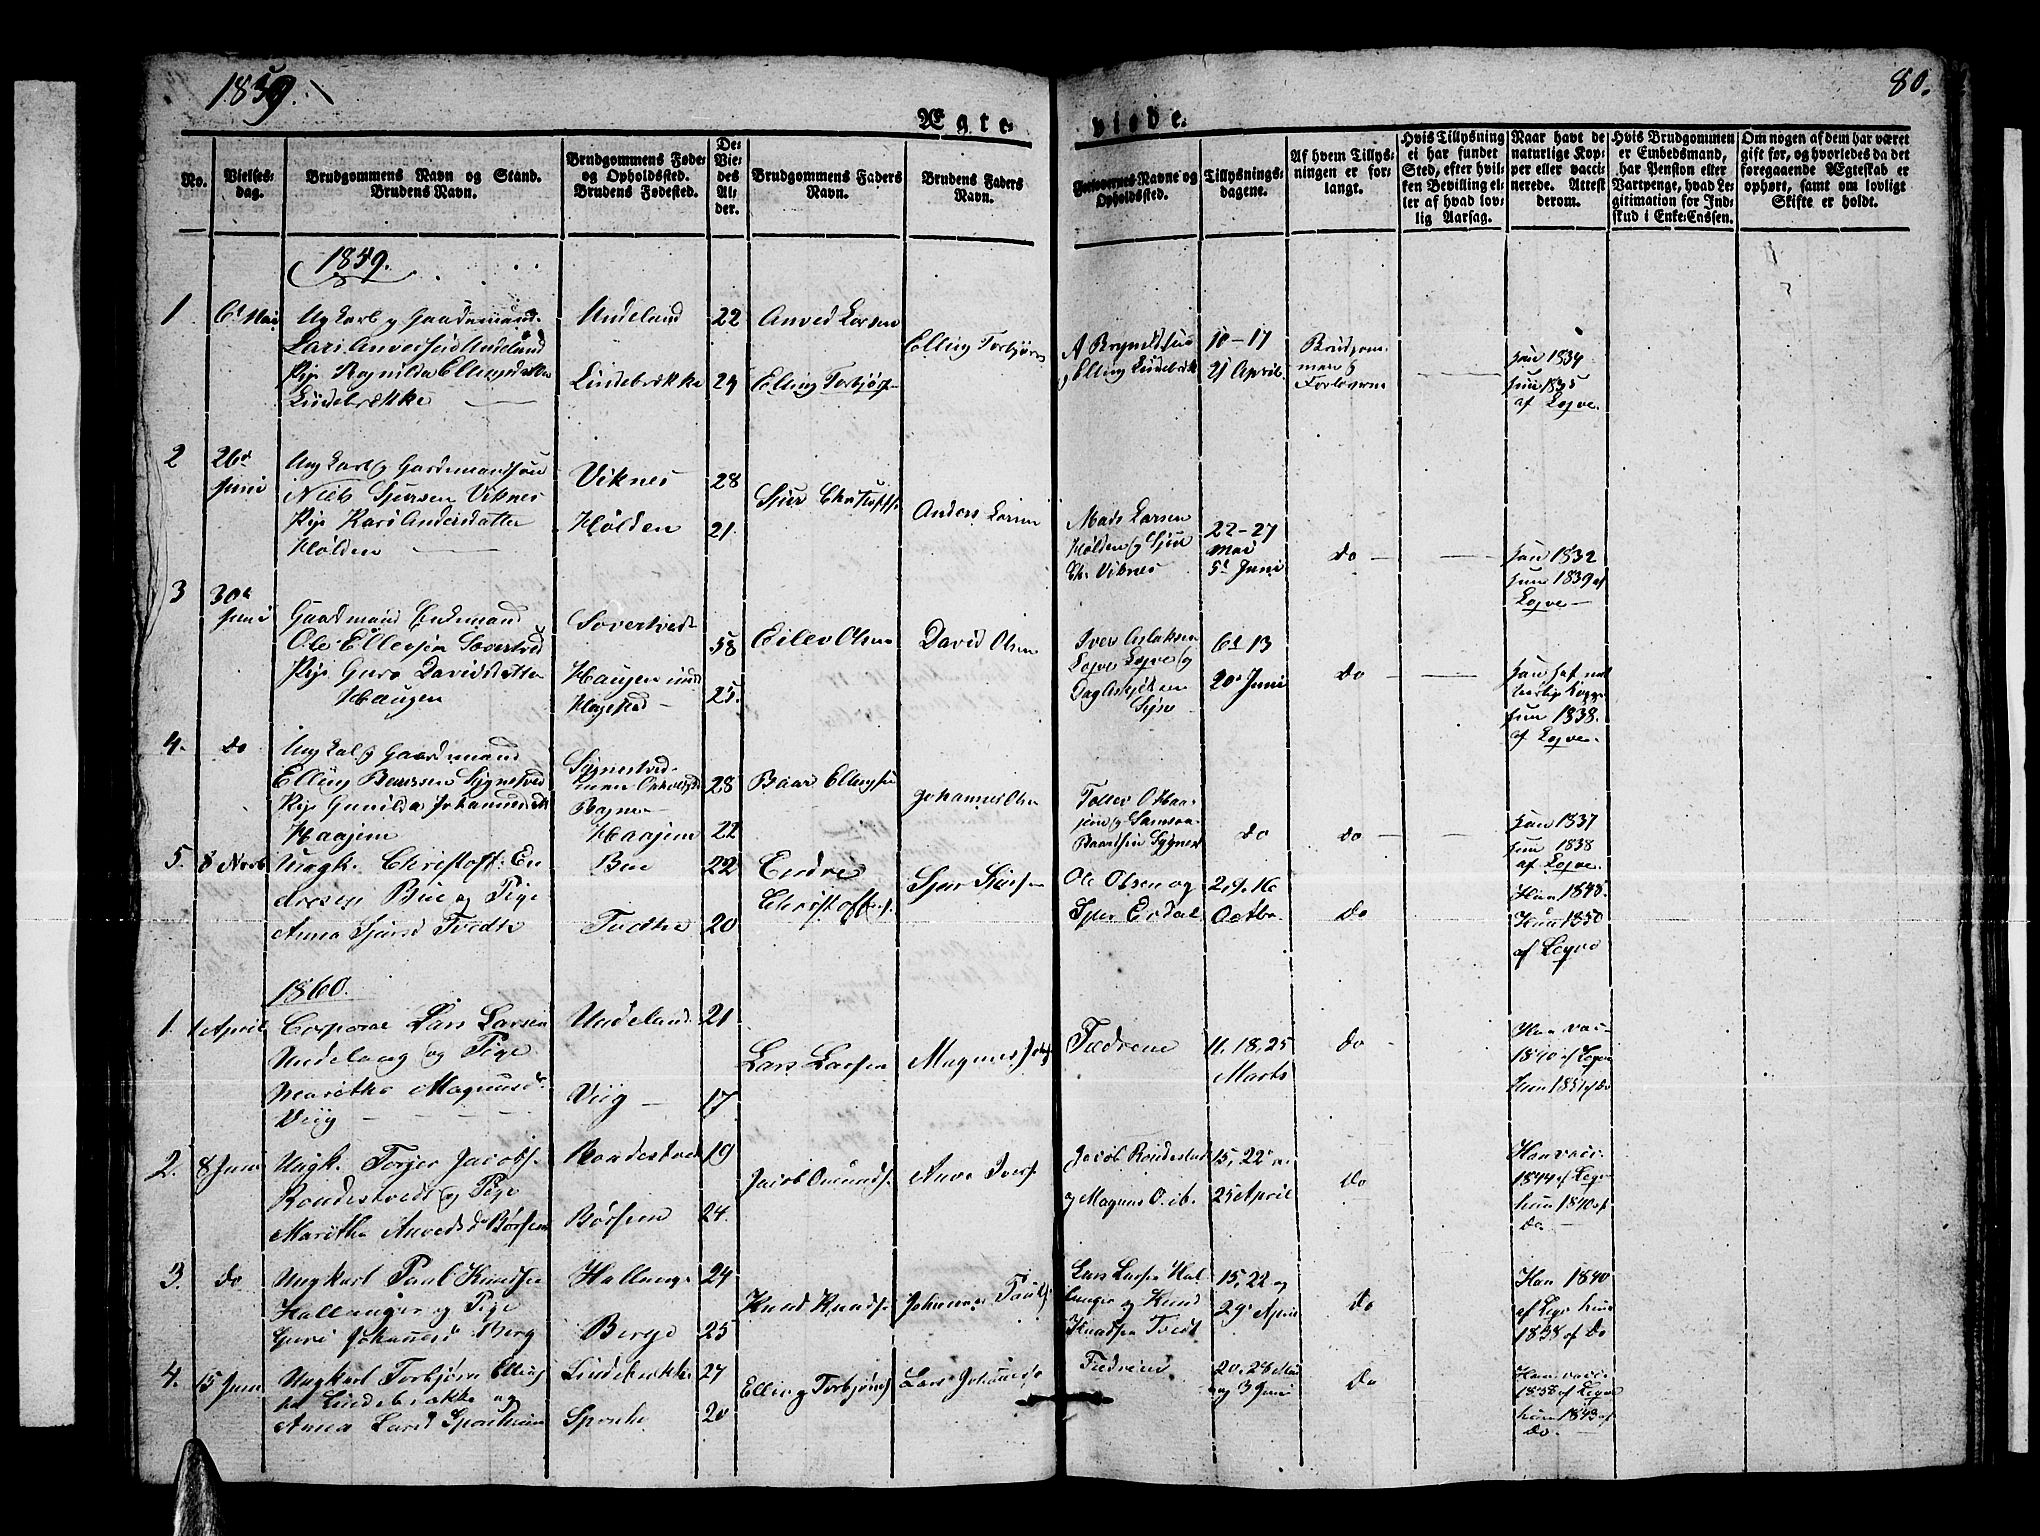 1859.
80.
Ægte-
viede.
No.
Vielses-
dag.
Brudgommens Navn og Stand.
Brudens Navn.
Brudgommens Føde-
og Opholdssted.
Brudens Fødested.
De
Vie-
des
Al-
der.
Brudgommens Faders
Navn.
Brudens Faders
Navn.
Forlovernes Navne og
Opholdssted.
Tillysnings-
dagene.
Af hvem Tillys-
ningen er for-
langt.
Hvis Tillysning
ei har fundet
Sted, efter hvil-
ken Bevilling el-
ler af hvad lov-
lig Aarsag.
Naar havt de
naturlige Kop-
per eller vacci-
nerede. Attest
derom.
Hvis Brudgommen
er Embedsmand,
har Pension eller
Vartpenge, hvad Le-
gitimation for Ind-
skud i Enke-Cassen.
Om nogen af dem har været
gift før, og hvorledes da det
foregaaende Ægteskab er
ophørt, samt om lovligt
Skifte er holdt.
1859.
1 6t Mai
Ungkarl og Gaardmand
Lars Anvedsen Undeland
Pige Ragnilda Ellingsdatter
Lindebrække
Undeland
Lindebrække
22
24
Anved Larsen
Elling Torbjørs
Elling Torbjørns
A Bryneldsen
og Elling Lindebræk
10-17
21 April.
Brudgom-
men og
Forloverne
han 1834
hun 1835
af Legve.
2 26de
Juni
Ungkarl og Gardemandssøn
Niels Sjursen Viknes
Pige Kari Andersdatter
Hølden
Viknes
Hølden
28
21.
Sjur Christofs.
Anders Larsen
Mads Larsen
Hølden og Sjur
Ch. Viknes
22-27
Mai
5t Juni
do
han 1832
hun 1839 af
Legve
3 30de
Juni
Gaardmand Enkemand
Ole Ellevsen Sævertved
Pige Guro Davidsdatter
Haugen
Sævertvedt
Haugen under
Hagestad
58
25.
Eilev Olsen
David Olsen
Iver Aslaksen
Legve og
6t 13
20de Juni
do
han haft nat
hun 1838.
af Legve.
4. do
Ungkal og Gaardmand
Elling Baarsen Sygnestved
Pige Gunilda Johannesdtr
Haajem
Sygnestved
Haajem
28
22
Baar Ellingsen
Johannes Olsen
do
do
han 1837
hun 1838
af Legve.
5. 8 Novb
Ungk. Christoff: En-
dresen Bue og Pige
Anna Sjursd Tvedte
Bue
Tvedte
22
20
Endre
Christoffers.
Sjur Sjurs
Ole Olsen og
Sjur Erdal
2, 9, 16
Octbr.
do
Han 1848.
Hun 1850
af Legve
1860.
1. 1 April
Corporal Lars Larsen
Undeland og Pige
Maritha Magnusd.
Viig
Undeland
Viig
21
17
Lars Larsen
Magnus
Fædrene
11, 18, 25
Marts
do
Han vac-
1840 af Legve
Hun 1851 af do
2. 8 Juni
Ungk. Torger Jacobs.
Rondestvedt og Pige
Maritha Anvedsd. Børsem
Rondestved
Børsem
19
24.
Jacob Omunds.
Anve Ivers
Jacob Rondestved
og Magnus O. ib.
15, 22 og
25 April
do
Han vacc.
1844 af Legve
hun 1840 af
do
3. do
Ungkarl Paul Knudsen
Hallanger og Pige
Guri Johannesd Berg
Hallange
Berge
24
25
Knud Knuds.
Johannes Pauls
Lars Larsen Hal-
langer og Knud
Knudsen Tvedt
15, 22 og
29 April
do
Han 1840
af Legve hun
1838 af do
4. 15 Juni
Ungkarl Torbjørn Ellings
sen Lindebrække og
Anna Larsd Sponheim
Lindebrække
Sponhe
27
20
Elling Torbjørns
Lars Johannes
Fædrene
20, 28 Mai
og 3 Juni
do
Han vacc.
1838 af Legve
hun 1843 af
do